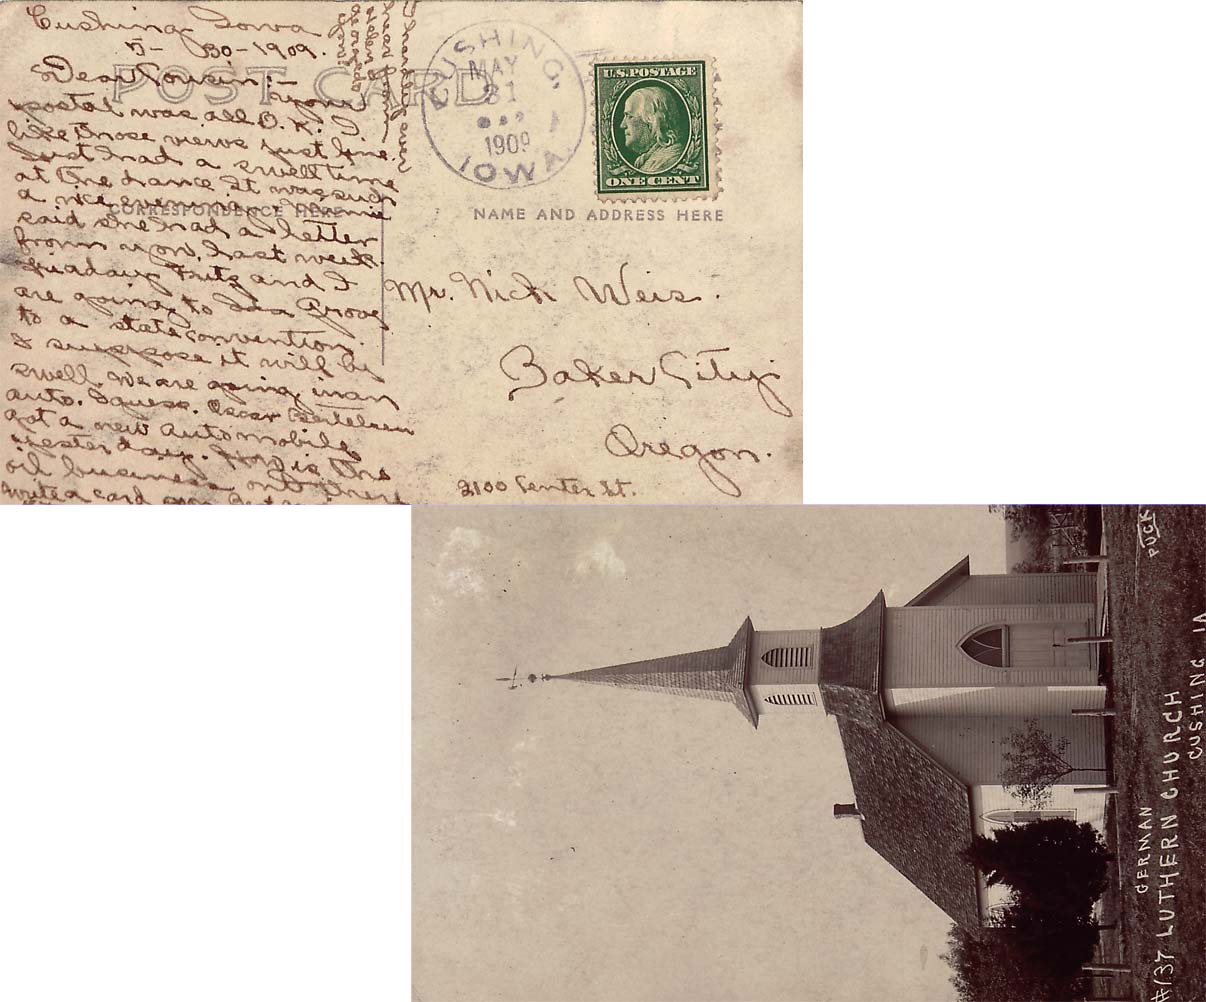 Cushing Iowa
5- 30-1909.
Dear Cousin:-
POST CARD
Your
postal was all O.K. I
like those views just fine.
Just had a swell time
at the dance It was such
a nice evening.
CORRESPONDENCE HERE
said she had a letter
from you, last week.
Friday Fritz and I
are going to Ida Grove
to a state convention.
I suppose it will be
swell. We are going in an
auto. I guess. Oscar Bertelsen
got a new Automobile
yesterday. How is the
oil business out there
Write a card
CUSHING,
MAY
31
1909
IOWA.
U.S. POSTAGE
ONE CENT
NAME AND ADDRESS HERE
Mr. Nick Weis.
Baker City,
Oregon.
2100 Center St.
PUCK
GERMAN
#137 LUTHERN CHURCH
CUSHING IA